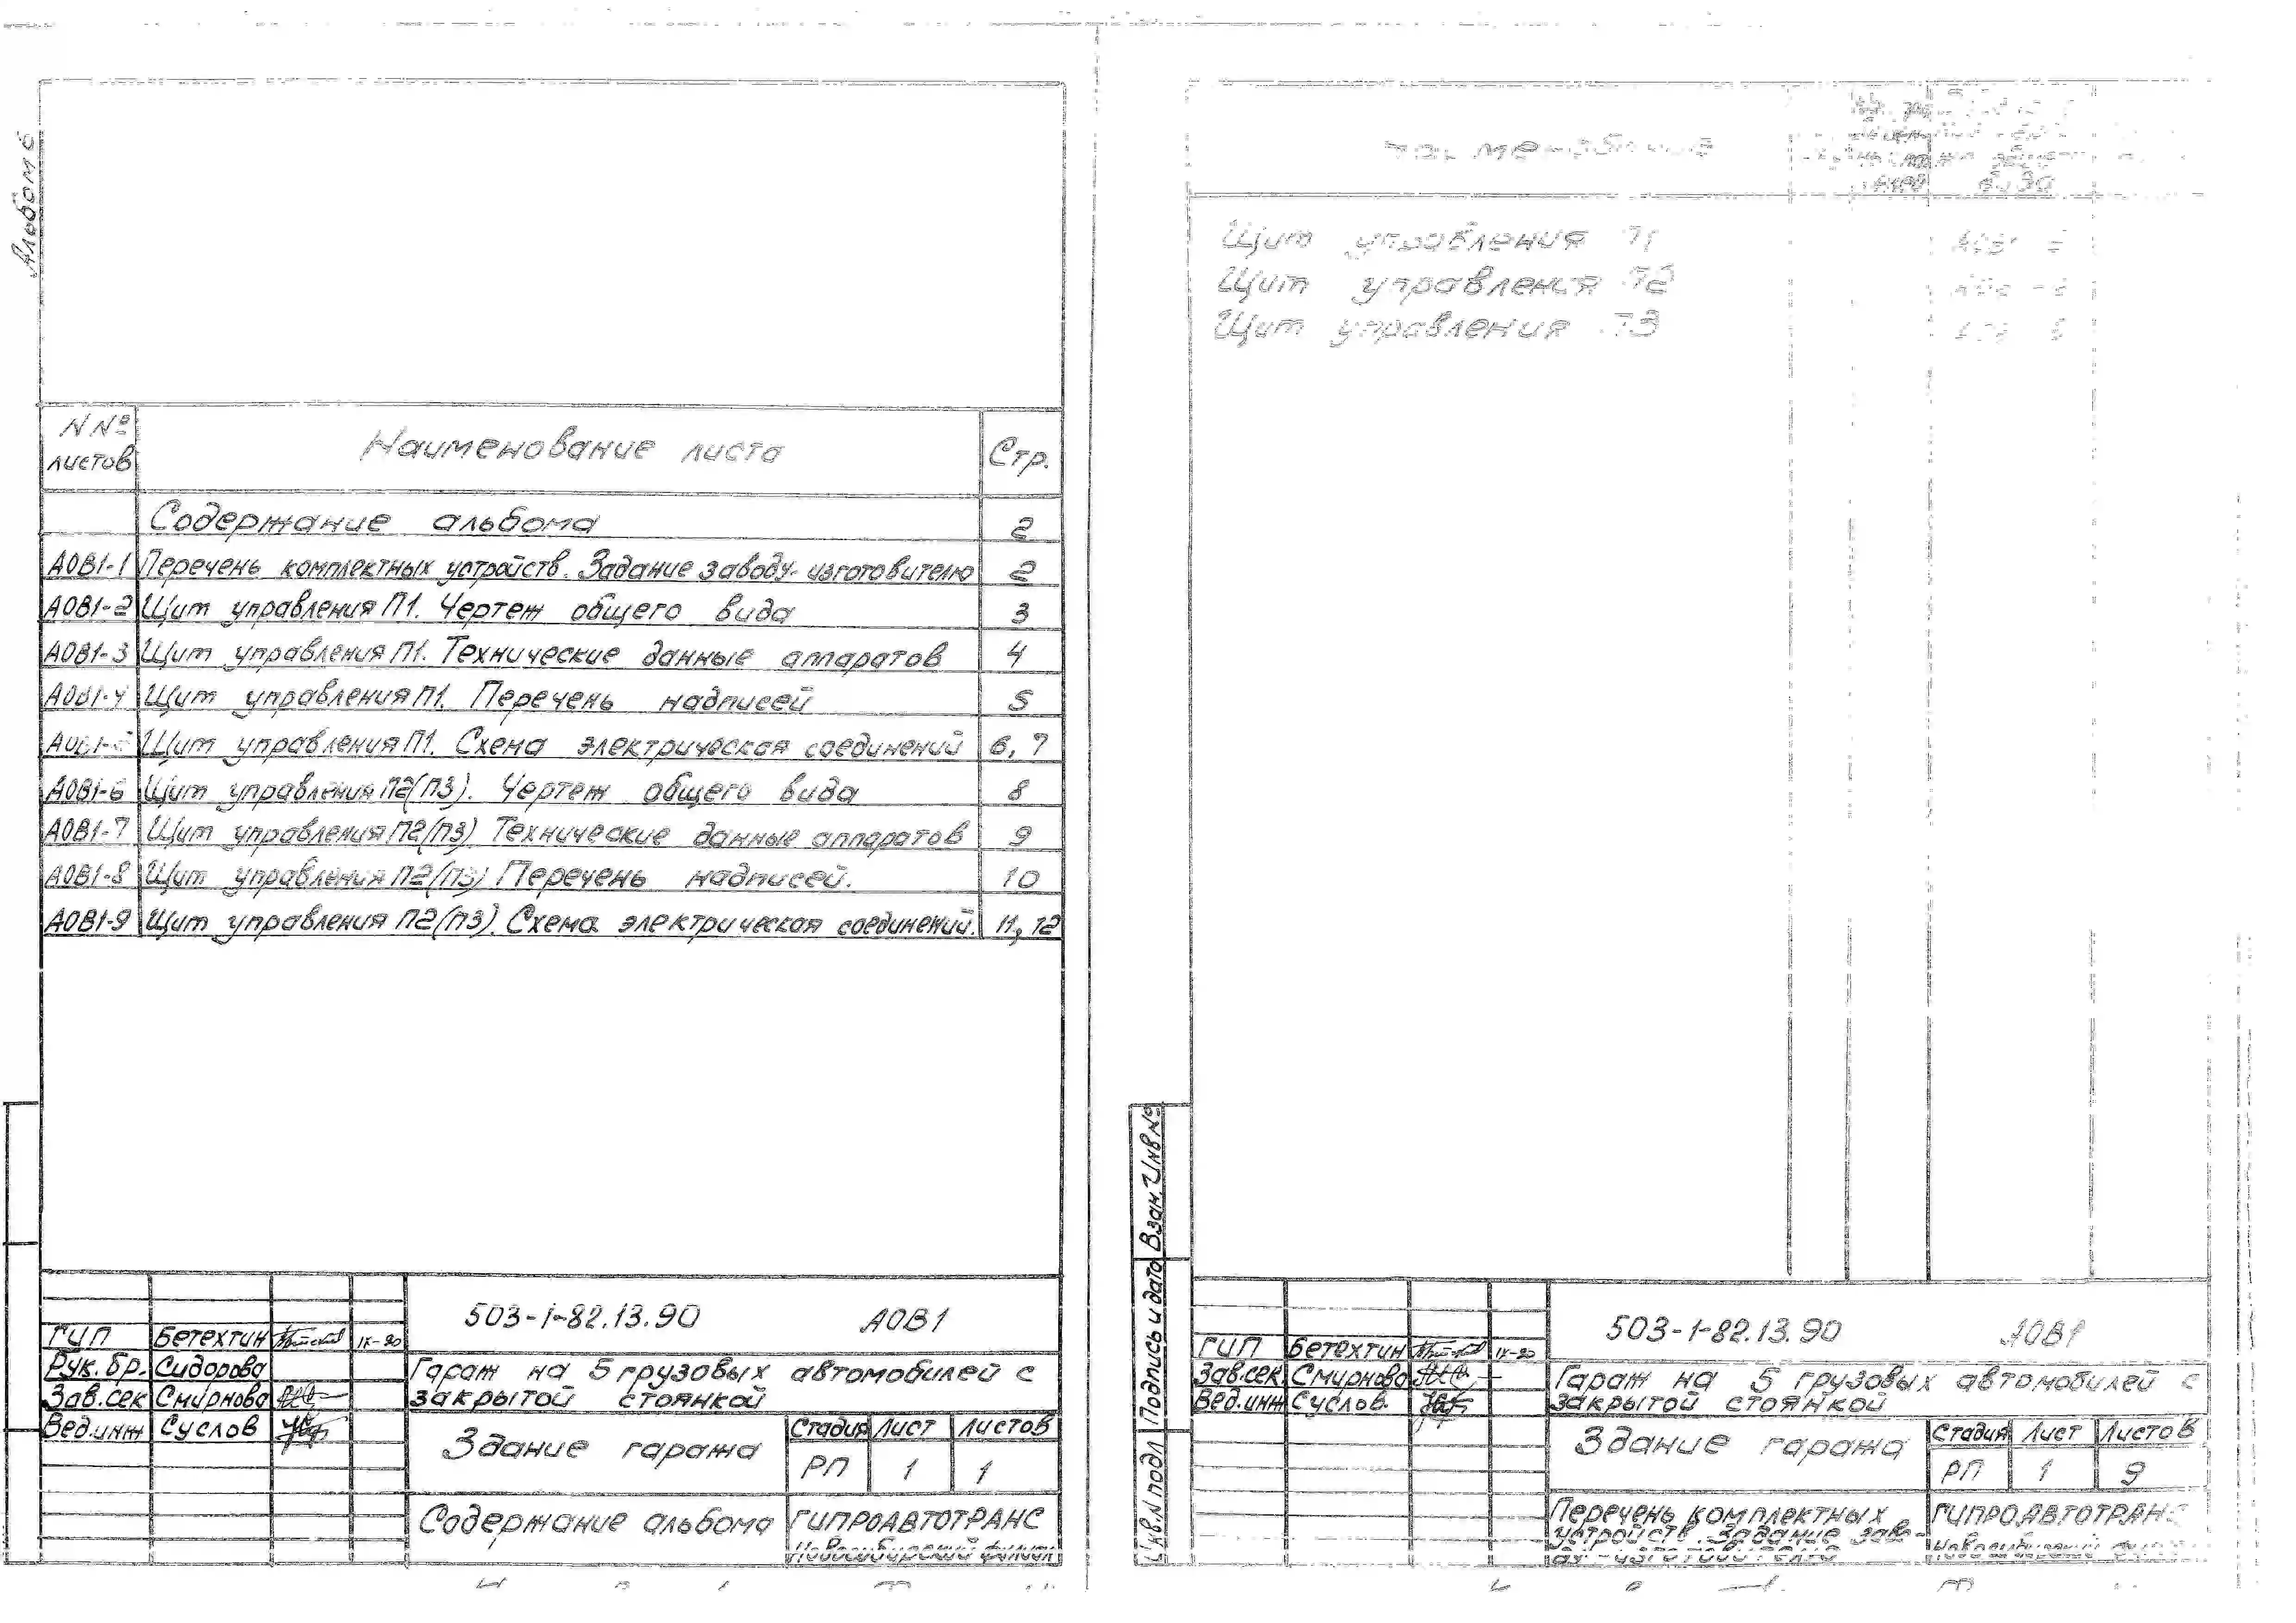 Альбом 6
N Nº листов
Наименование листа
Стр.
Содержание альбома 2
АОВ1-1 Перечень комплектных устройств. Задание заводу-изготовителю 2
АОВ1-2 Щит управления П1. Чертеж общего вида 3
АОВ1-3 Щит управления П1. Технические данные аппаратов 4
АОВ1-4 Щит управления П1. Перечень надписей 5
АОВ1-5 Щит управления П1. Схема электрическая соединений 6, 7
АОВ1-6 Щит управления П2(П3). Чертеж общего вида 8
АОВ1-7 Щит управления П2(П3) Технические данные аппаратов 9
АОВ1-8 Щит управления П2(П3) Перечень надписей. 10
АОВ1-9 Щит управления П2(П3). Схема электрическая соединений. 11, 12
503-1-82.13.90 АОВ1
ГИП Бетехтин IX-90
Рук. бр. Сидорова
Зав.сек Смирнова
Вед.инж Суслов
Гараж на 5 грузовых автомобилей с
закрытой стоянкой
Здание гаража
Стадия Лист Листов
РП 1 1
Содержание альбома
ГИПРОАВТОТРАНС
Новосибирский филиал
Щит управления П1
Щит управления П2
Щит управления П3
Взам. Инв №
Подпись и дата
Инв. N подл
503-1-82.13.90 АОВ1
ГИП Бетехтин IX-90
Зав.сек. Смирнова
Вед.инж Суслов.
Гараж на 5 грузовых автомобилей с
закрытой стоянкой
Здание гаража
Стадия Лист Листов
РП 1 9
Перечень комплектных
устройств. Задание заво-
ду-изготовителю
ГИПРОАВТОТРАНС
Новосибирский